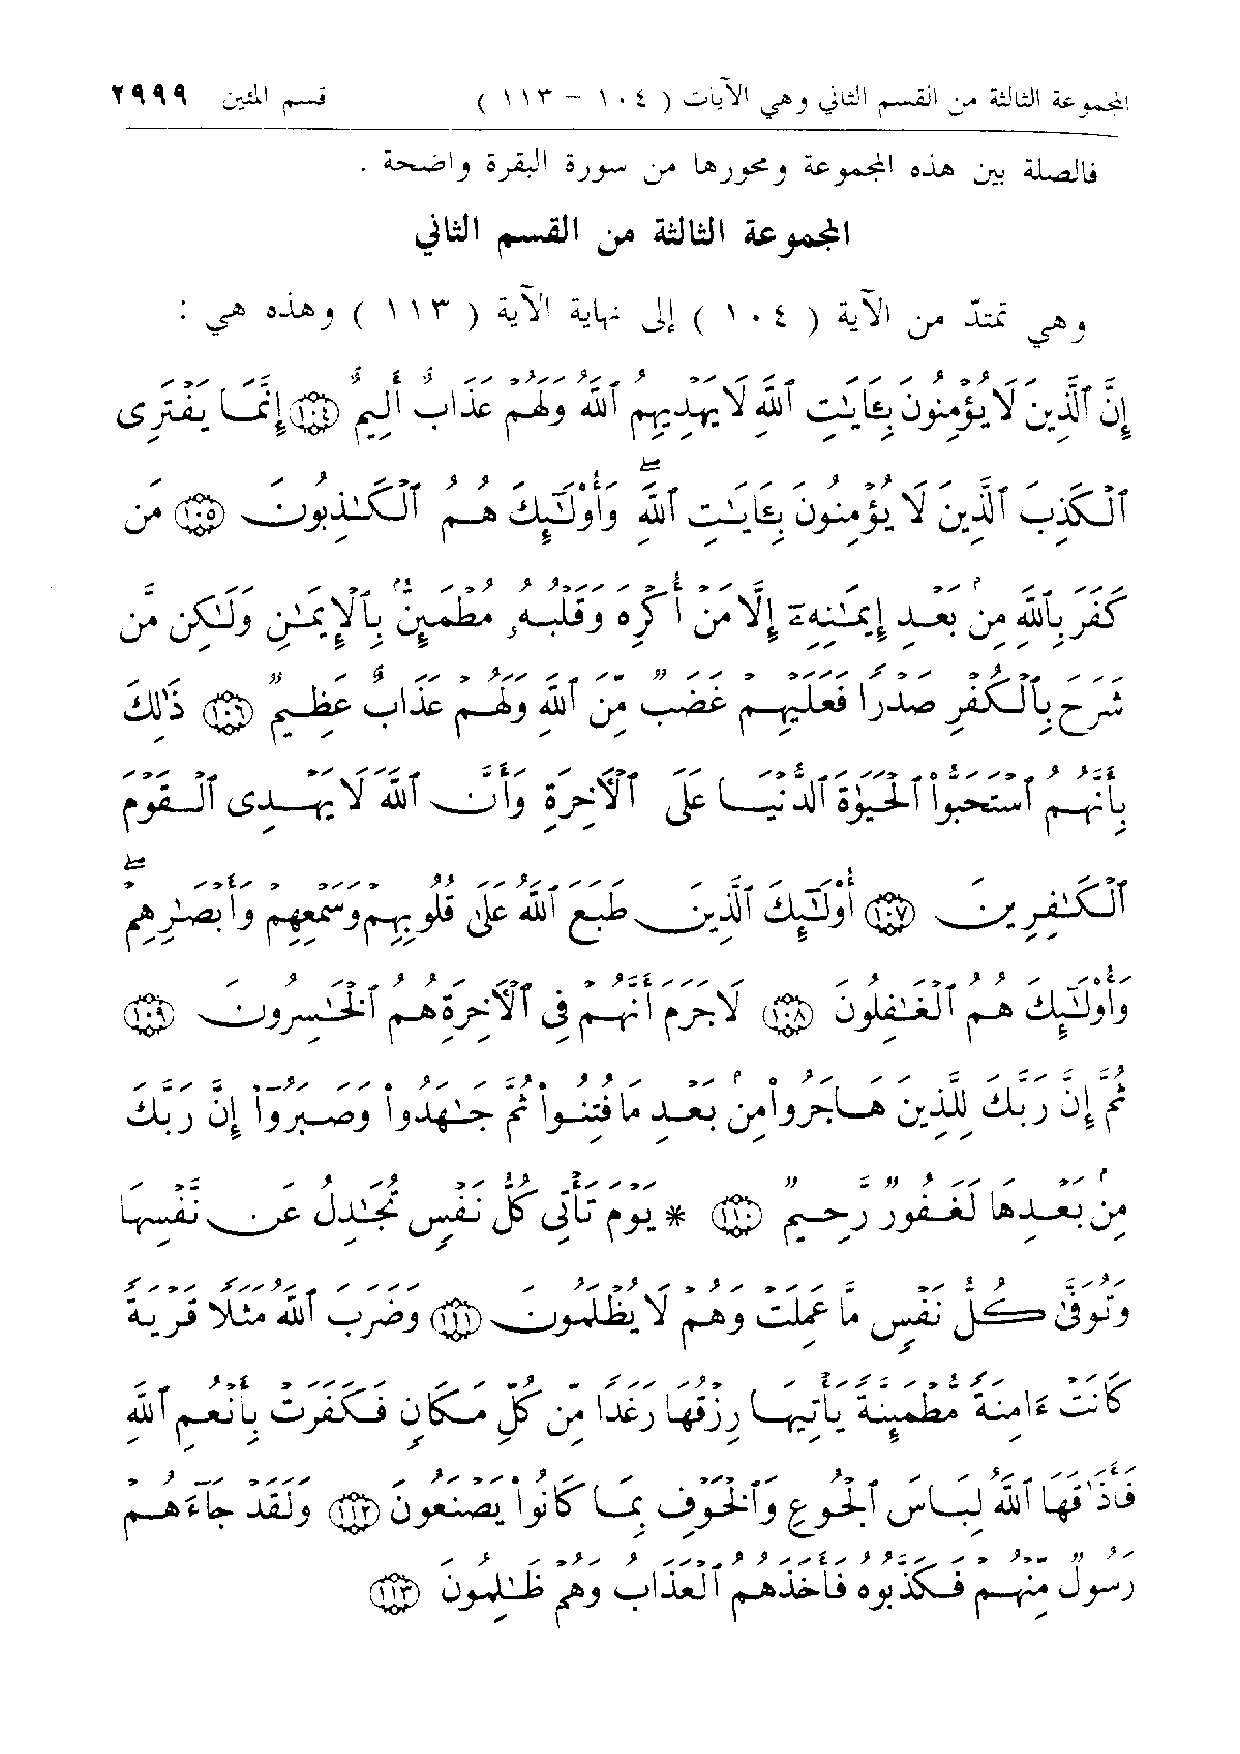 المجموعة الثالثة من القسم الثاني وهي الآيات ( ١٠٤ – ١١٣ ) قسم المئين ٢٩٩٩
فالصلة بين هذه المجموعة ومحورها من سورة البقرة واضحة .
المجموعة الثالثة من القسم الثاني
وهي تمتدّ من الآية ( ١٠٤ ) إلى نهاية الآية ( ١١٣ ) وهذه هي :
إِنَّ ٱلَّذِينَ لَا يُؤْمِنُونَ بِـَٔايَٰتِ ٱللَّهِ لَا يَهْدِيهِمُ ٱللَّهُ وَلَهُمْ عَذَابٌ أَلِيمٌ ١٠٤ إِنَّمَا يَفْتَرِى
ٱلْكَذِبَ ٱلَّذِينَ لَا يُؤْمِنُونَ بِـَٔايَٰتِ ٱللَّهِ ۖ وَأُو۟لَٰٓئِكَ هُمُ ٱلْكَٰذِبُونَ ١٠٥ مَن
كَفَرَ بِٱللَّهِ مِنۢ بَعْدِ إِيمَٰنِهِۦٓ إِلَّا مَنْ أُكْرِهَ وَقَلْبُهُۥ مُطْمَئِنٌّۢ بِٱلْإِيمَٰنِ وَلَٰكِن مَّن
شَرَحَ بِٱلْكُفْرِ صَدْرًا فَعَلَيْهِمْ غَضَبٌ مِّنَ ٱللَّهِ وَلَهُمْ عَذَابٌ عَظِيمٌ ١٠٦ ذَٰلِكَ
بِأَنَّهُمُ ٱسْتَحَبُّوا۟ ٱلْحَيَوٰةَ ٱلدُّنْيَا عَلَى ٱلْـَٔاخِرَةِ وَأَنَّ ٱللَّهَ لَا يَهْدِى ٱلْقَوْمَ
ٱلْكَٰفِرِينَ ١٠٧ أُو۟لَٰٓئِكَ ٱلَّذِينَ طَبَعَ ٱللَّهُ عَلَىٰ قُلُوبِهِمْ وَسَمْعِهِمْ وَأَبْصَٰرِهِمْ ۖ
وَأُو۟لَٰٓئِكَ هُمُ ٱلْغَٰفِلُونَ ١٠٨ لَا جَرَمَ أَنَّهُمْ فِى ٱلْـَٔاخِرَةِ هُمُ ٱلْخَٰسِرُونَ ١٠٩
ثُمَّ إِنَّ رَبَّكَ لِلَّذِينَ هَاجَرُوا۟ مِنۢ بَعْدِ مَا فُتِنُوا۟ ثُمَّ جَٰهَدُوا۟ وَصَبَرُوٓا۟ إِنَّ رَبَّكَ
مِنۢ بَعْدِهَا لَغَفُورٌ رَّحِيمٌ ١١٠ * يَوْمَ تَأْتِى كُلُّ نَفْسٍ تُجَٰدِلُ عَن نَّفْسِهَا
وَتُوَفَّىٰ كُلُّ نَفْسٍ مَّا عَمِلَتْ وَهُمْ لَا يُظْلَمُونَ ١١١ وَضَرَبَ ٱللَّهُ مَثَلًا قَرْيَةً
كَانَتْ ءَامِنَةً مُّطْمَئِنَّةً يَأْتِيهَا رِزْقُهَا رَغَدًا مِّن كُلِّ مَكَانٍ فَكَفَرَتْ بِأَنْعُمِ ٱللَّهِ
فَأَذَٰقَهَا ٱللَّهُ لِبَاسَ ٱلْجُوعِ وَٱلْخَوْفِ بِمَا كَانُوا۟ يَصْنَعُونَ ١١٢ وَلَقَدْ جَآءَهُمْ
رَسُولٌ مِّنْهُمْ فَكَذَّبُوهُ فَأَخَذَهُمُ ٱلْعَذَابُ وَهُمْ ظَٰلِمُونَ ١١٣